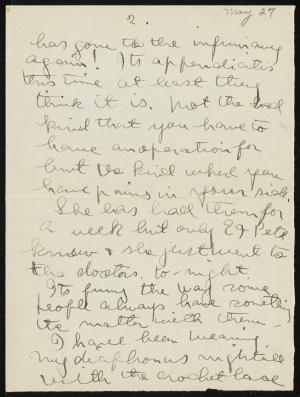 2.
May 27
has gone to the infirmary
again! Its appendicitis
this time at least they
think it is. Not the bad
kind that you have to
have an operation for
but the kind where you
have pains in your side.
She has had them for
a week but only E & Pete
know & she just went to
the doctors to-night.
Its funny the way some
people always have something
the matter with them -
I have been wearing
my diaphonus nightie
with the crochet lace